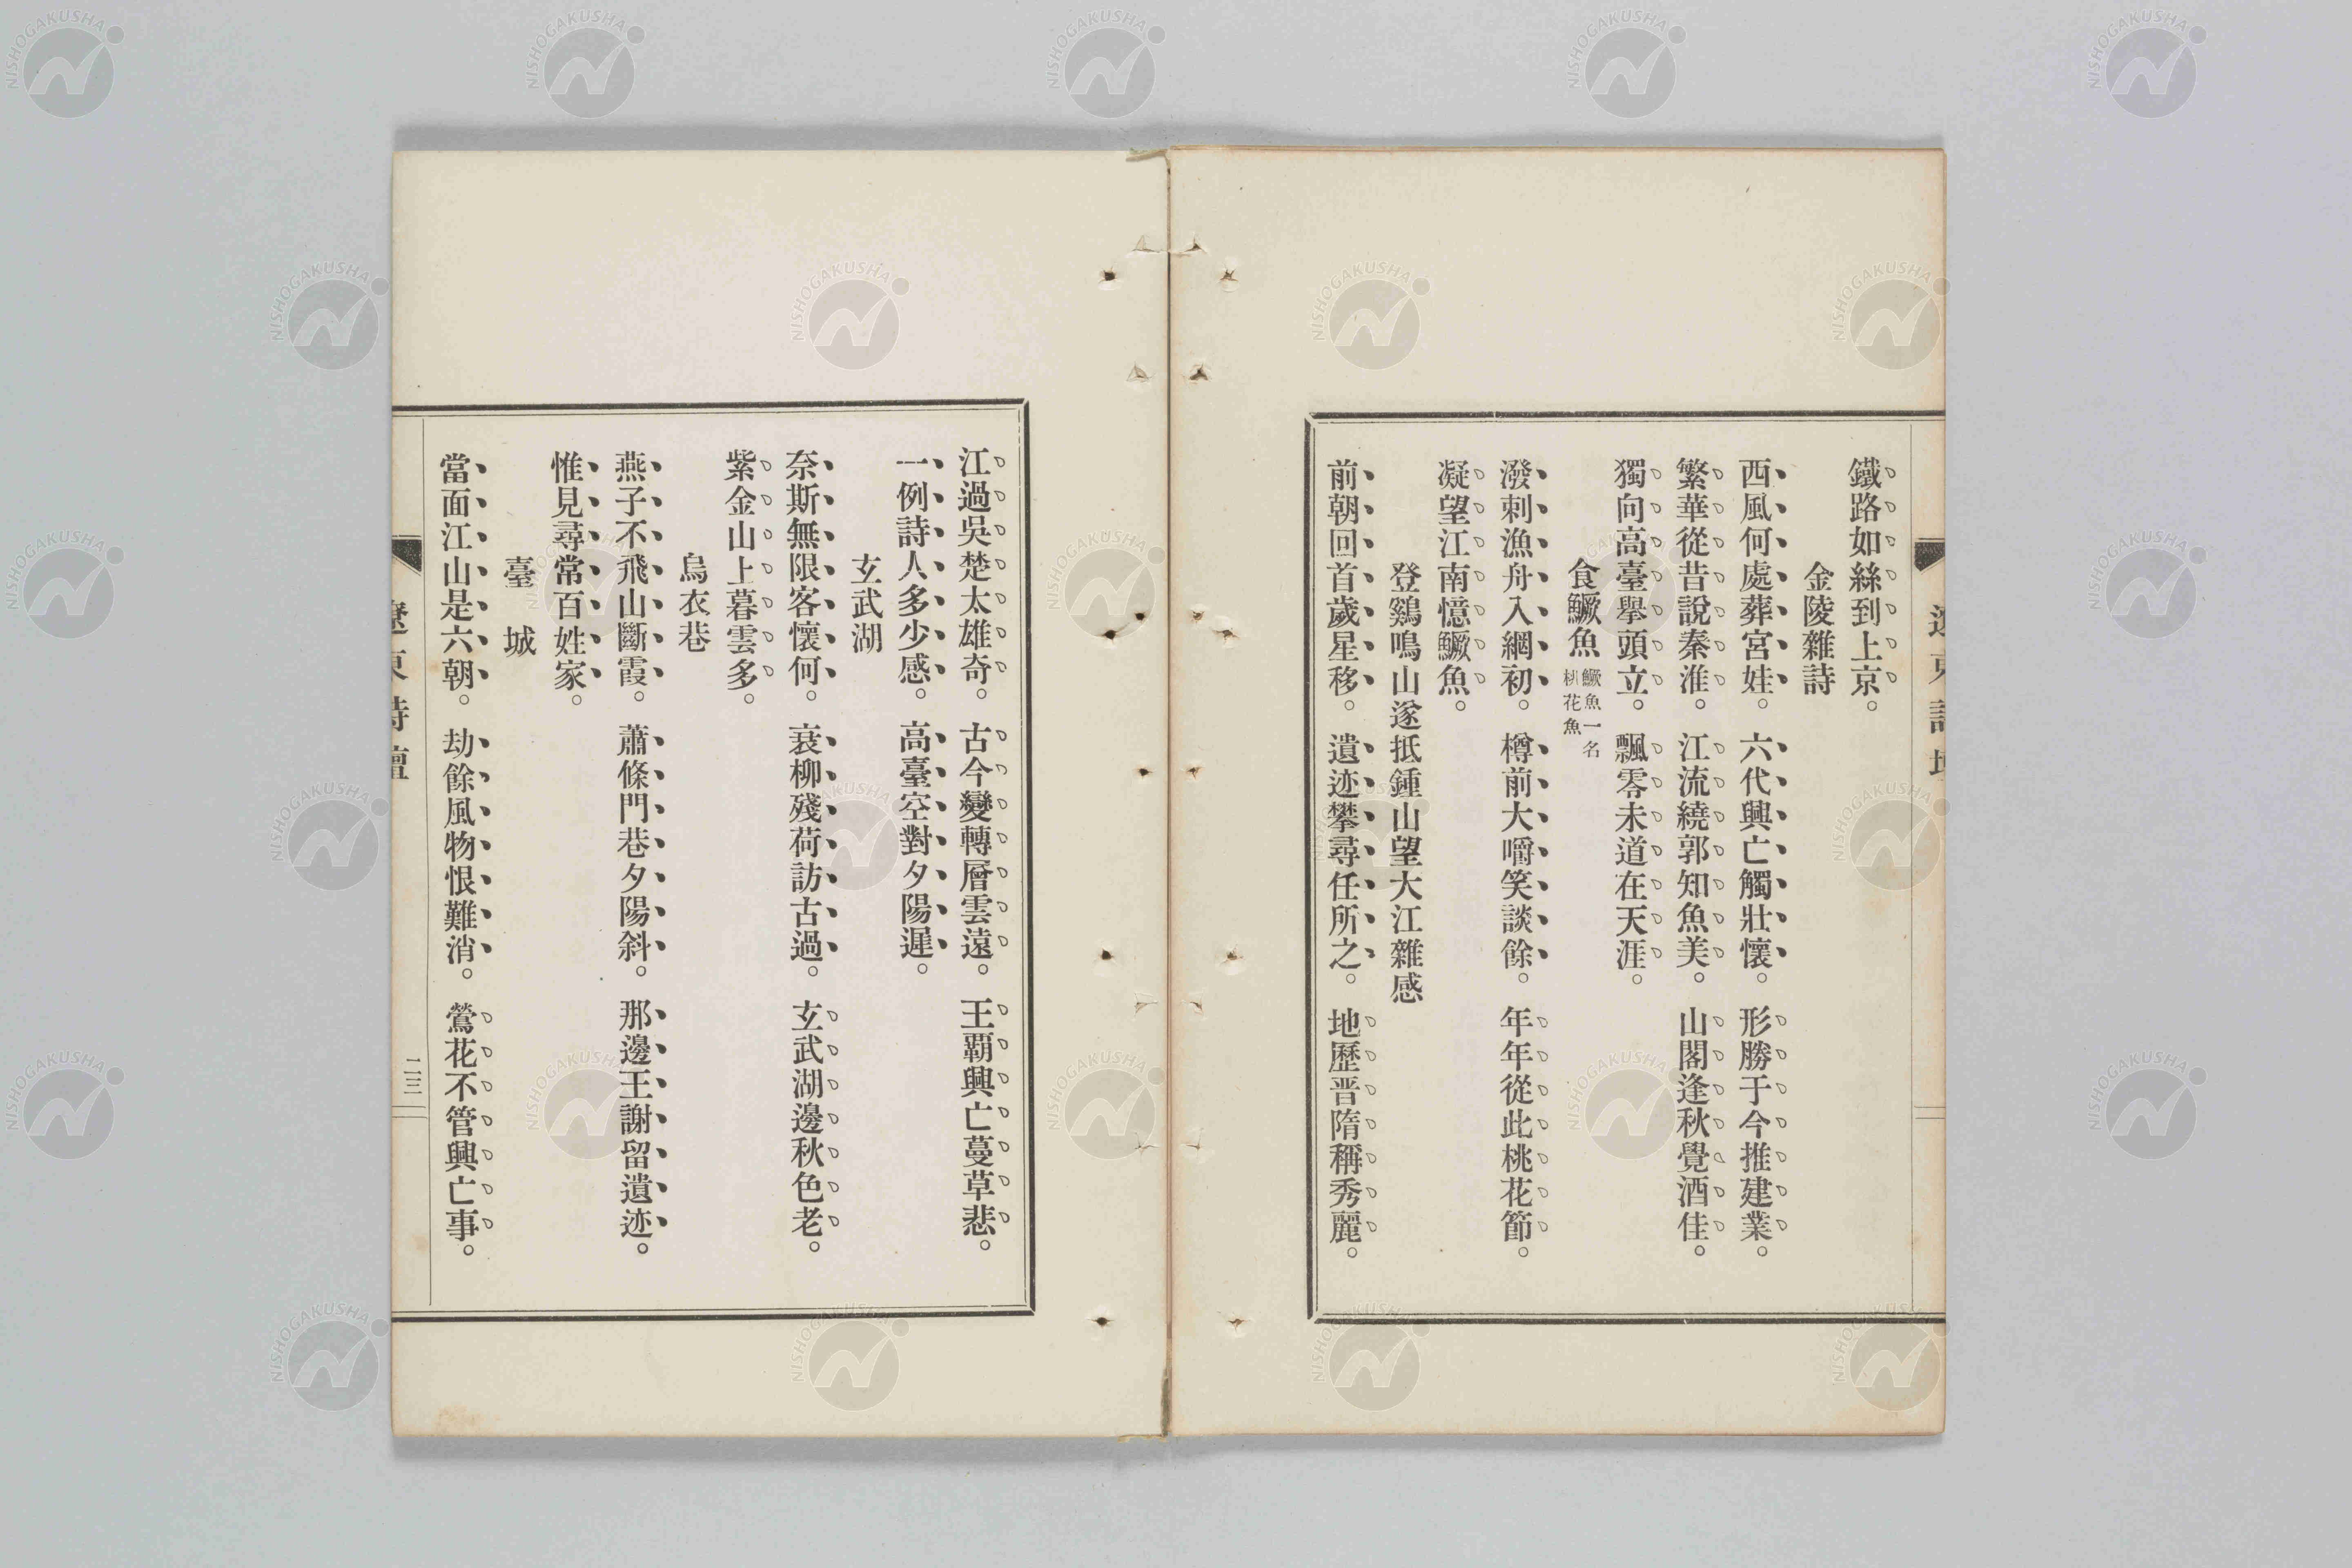 鐵路如絲到上京。
金陵雜詩
西風何處葬宮娃。六代興亡觸壯懷。形勝于今推建業。
繁華從昔說秦淮。江流繞郭知魚美。山閣逢秋覺酒佳。
獨向高臺擧頭立。飄零未道在天涯。
食鱖魚 鱖魚一名桃花魚
潑刺漁舟入網初。樽前大嚼笑談餘。年年從此桃花節。
凝望江南憶鱖魚。
登鷄鳴山遂抵鍾山望大江雜感
前朝回首歲星移。遺迹攀尋任所之。地歷晋隋稱秀麗。
江過吳楚太雄奇。古今變轉層雲遠。王覇興亡蔓草悲。
一例詩人多少感。高臺空對夕陽遲。
玄武湖
奈斯無限客懷何。衰柳殘荷訪古過。玄武湖邊秋色老。
紫金山上暮雲多。
烏衣巷
燕子不飛山斷霞。蕭條門巷夕陽斜。那邊王謝留遺迹。
惟見尋常百姓家。
臺城
當面江山是六朝。劫餘風物恨難消。鶯花不管興亡事。
遼東詩壇
二三
NISHOGAKUSHA